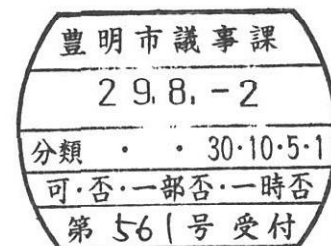 豊明市議事課
29.8.-2
分類 ・ ・ 30・10・5・1
可・否・一部否・一時否
第561号受付